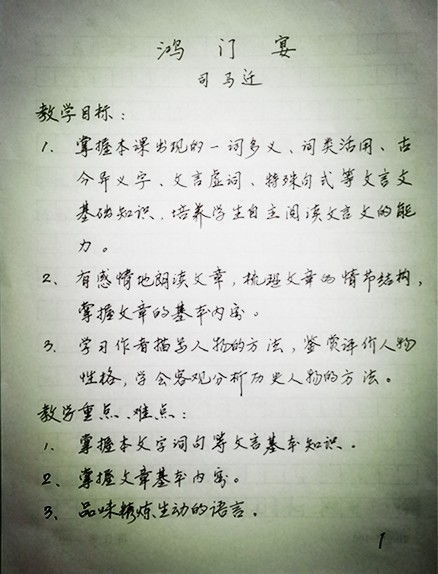 鸿门宴
司马迁
教学目标：
1、掌握本课出现的一词多义、词类活用、古
今异义字、文言虚词、特殊句式等文言文
基础知识，培养学生自主阅读文言文的能
力。
2、有感情地朗读文章，梳理文章的情节结构，
掌握文章的基本内容。
3、学习作者描写人物的方法，鉴赏评价人物
性格，学会客观分析历史人物的方法。
教学重点、难点：
1、掌握本文字词句等文言基本知识。
2、掌握文章基本内容。
3、品味精炼生动的语言。
1